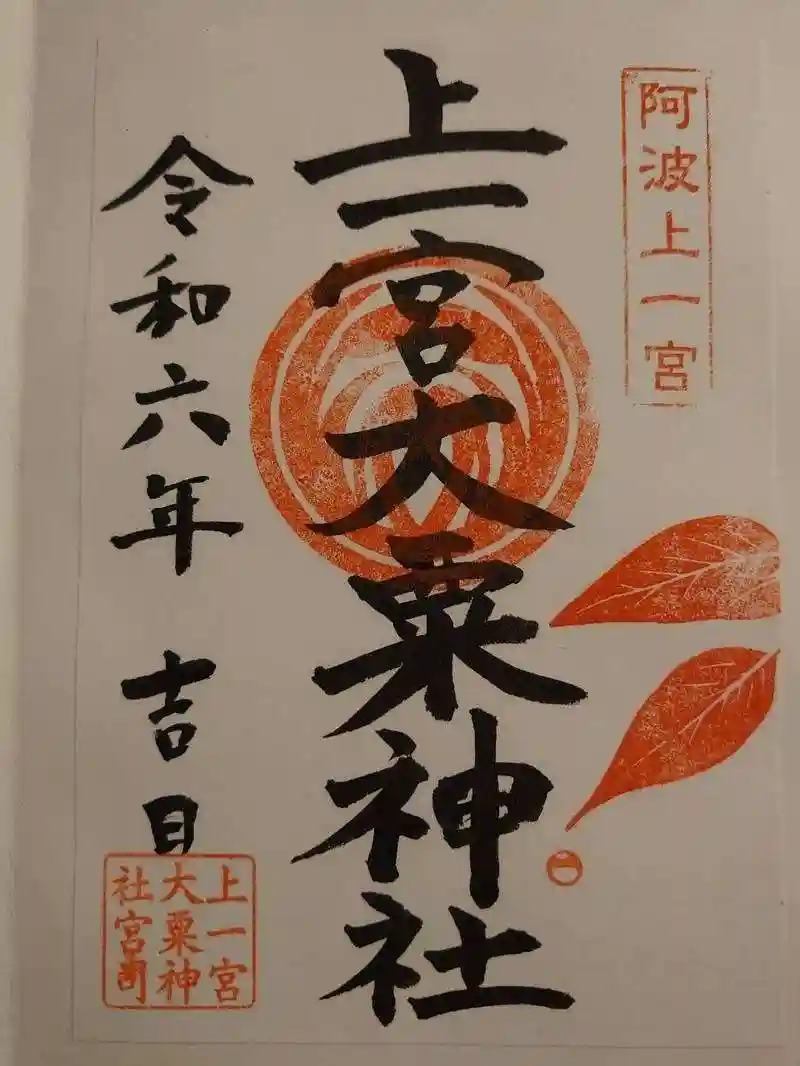 阿波上一宮
上一宮大粟神社
令和六年 吉日
上一宮
大粟神
社宮司